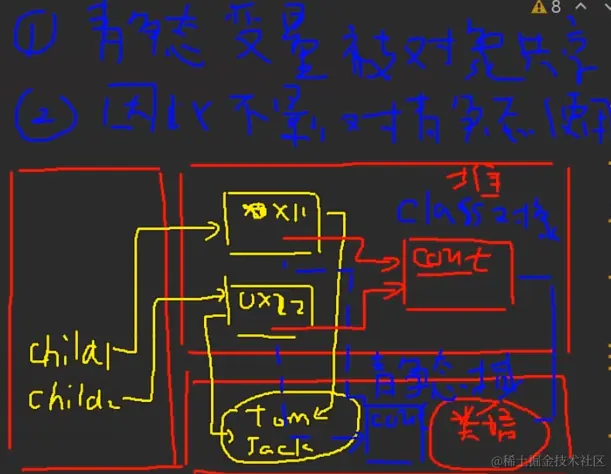 8
① 静态变量被对象共享
② 因此不影响对静态使用
堆
Class对象
0X11
count
0X22
child1
child2
静态域
Tom
Jack
coun
类信息
@稀土掘金技术社区